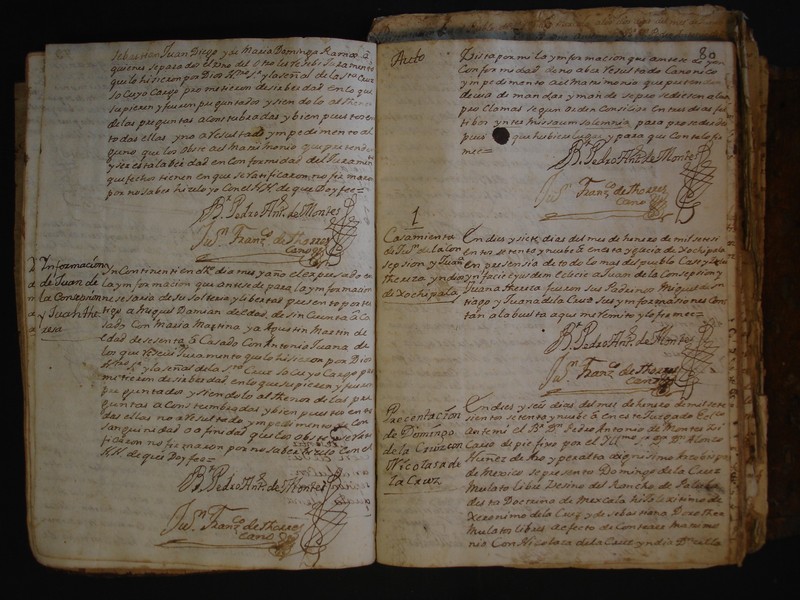 Sebastian Juan Diego y de Maria Dominga Ramos a
quienes separado el uno del otro les Resibi Juramento
que lo hisieron por Dios Nro. Sr. y la señal de la Sta. Cruz
so cuyo cargo prometieron desir berdad en lo que
supieren y fueren preguntados y siendo lo al thenor
de las preguntas acostumbradas y bien puestos en
todas ellas y no a Resultado ympedimento al
guno que los obste al Matrimonio que pretenden
y ser esta la berdad en conformidad del Juramento
que fechos tienen en que se Ratificaron no firmaron
por no saber hiselo yo con el NN. de que Doy fee=
Br. Pedro Anto. de Montes
Jun. Franco. de Thorres
Cano
Informacion
de Juan de
la Consepsion
y Juan The
resa
yn continenti en dho dia mes y año el expresado en
la ymformacion que antesede para la ymformacion
nesesaria de su solteria y libertad presento por tes
tigos a Miguel Damian de edad, de sin cuenta as. Ca
sado con Maria Martina y a Agustin Martin de
edad de sesenta as. Casado con Antonia Juana de
los que Resebi Juramento que lo hisieron por Dios
Nro. Sr. y la señal de la Sta. Cruz so cuyo cargo pro
metieron desir berdad en lo que supieren y fueren
preguntados y siendolo al thenor de las pre
guntas acostumbradas y bien puestos en to
das ellas no a Resultado ympedimento de con
sanguinidad o afinidad que los obste se Rati
ficaron no firmaron por no saber hiselo yo con el
NN. de que Doy fee=
Br. Pedro Anto. de Montes
Jun. Franco. de Thorres
Cano
80
Auto
Vista por mi la ymformacion que antesede y en
conformidad de no aber Resultado canonico
ympedimento al Matrimonio que pretenden
devia de mandar y mande se prosediesen a las
proclamas segun orden Consiliar en tres dias fes
tibos ynter missarum solemnia, para proseder de
pues que hubiere lugar y para que conste lo fir
me=
Br. Pedro Anto. de Montes
Jun. Franco. de Thorres
Cano
1
Casamiento
de Jun. de la Con
sepsion y Juana
Thereza yndios
de Xochipala
En dies y siete dias del mes de henero de mil setesi
entos setenta y nuebe as. en esta yglesia de Xochipala
en presensia de todo lo mas del pueblo Case y Vele
ynfacie eyusdem eclecie a Juan de la Consepsion y
Juana Thereza fueron sus Padrinos Miguel de San
tiago y Juana de la Cruz sus ymformasiones cons
tan a la buelta a que me Remito y lo firme=
Br. Pedro Anto. de Montes
Jun. Franco. de Thorres
Cano
Precentacion
de Domingo
de la Cruz con
Nicolasa de
La Cruz
En dies y seis dias del mes de henero de mil sete
sientos setenta y nuebe as. en este Juzgado Eclco.
ante mi el Br. Dn. Pedro Antonio de Montes Vi
cario de pie fixo por el Yllmo. Sr. Dr. Dn. Alonso
Nuñez de Aro y peralta dignissimo Arzobispo
de Mexico se presento Domingo de la Cruz
Mulato libre Vesino del Rancho de Palula
desta Doctrina de Mexcala hijo lexitimo de
Xeronimo de la Cruz y de Sebastiana Dorothea
Mulatos libres a efecto de contraer Matrimo
nio con Nicolasa de la Cruz yndia